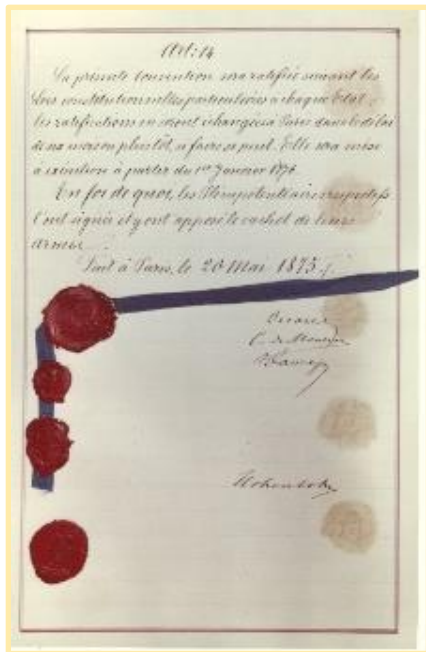 Art: 14
La présente Convention sera ratifiée suivant les
lois constitutionnelles particulières à chaque Etat;
les ratifications en seront échangées à Paris dans le délai
de six mois ou plus tôt, si faire se peut. Elle sera mise
à exécution à partir du 1er Janvier 1876.
En foi de quoi, les Plénipotentiaires respectifs
l'ont signée et y ont apposé le cachet de leurs
armes.
Fait à Paris, le 20 Mai 1875.
Decazes
Hohenlohe